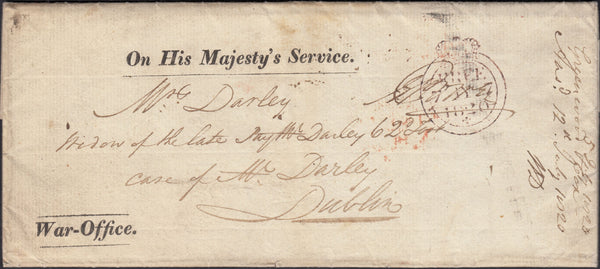 On His Majesty's Service.
Mrs. Darley
Widow of the late Pay Mr. Darley 62 Regt
care of Mr. Darley
Dublin
War-Office.
FREE
1820
12 July 1820